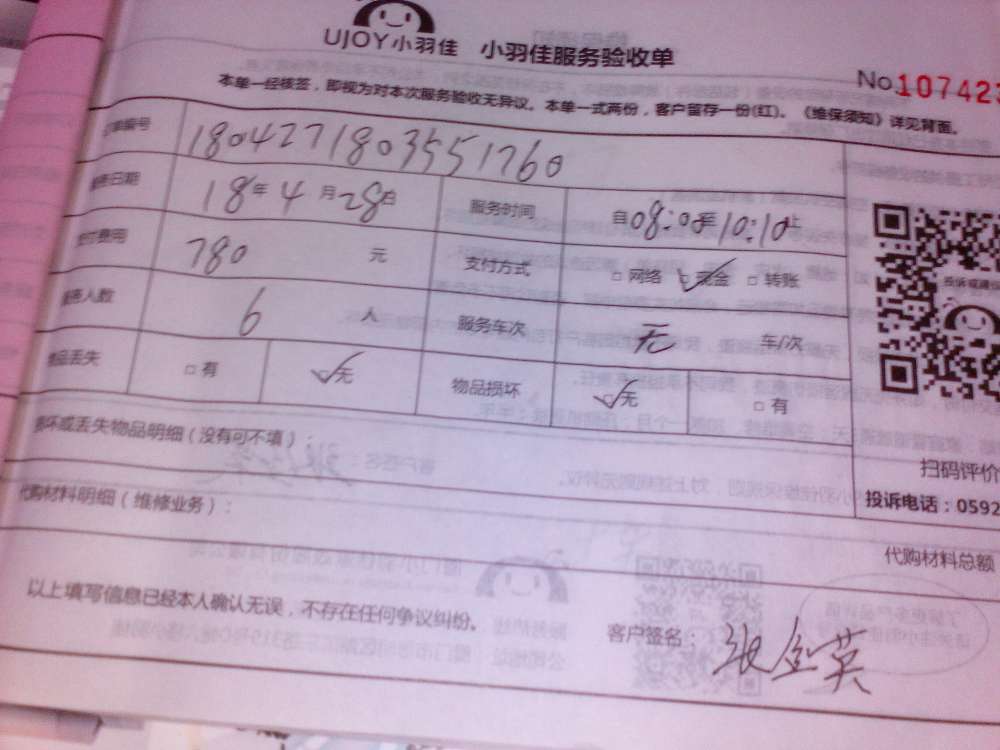 UJOY小羽佳 小羽佳服务验收单
No.107423
本单一经核签，即视为对本次服务验收无异议。本单一式两份，客户留存一份(红)。《维保须知》详见背面。
订单编号 1804271803551760
服务日期 18年4月28日 服务时间 自08:00至10:10止
支付费用 780 元 支付方式 □网络 ☑现金 □转账
服务人数 6 人 服务车次 无 车/次
物品丢失 □有 ☑无 物品损坏 ☑无 □有
投诉或建议
损坏或丢失物品明细（没有可不填）：
扫码评价
投诉电话：0592
代购材料明细（维修业务）：
代购材料总额
以上填写信息已经本人确认无误，不存在任何争议纠纷。
客户签名：张金英